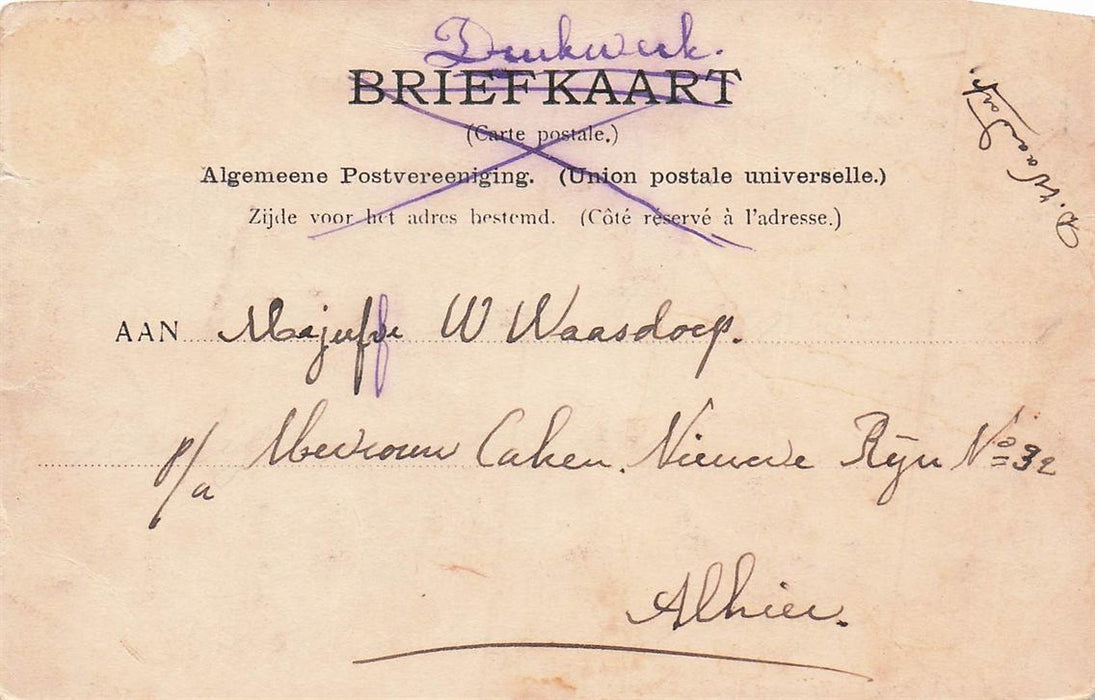 Drukwerk.
BRIEFKAART
(Carte postale.)
Algemeene Postvereeniging. (Union postale universelle.)
Zijde voor het adres bestemd. (Côté réservé à l'adresse.)
AAN Majuffe W Waasdorp.
p/a Mevrouw Cahen. Nieuwe Rijn No 32
Alhier.